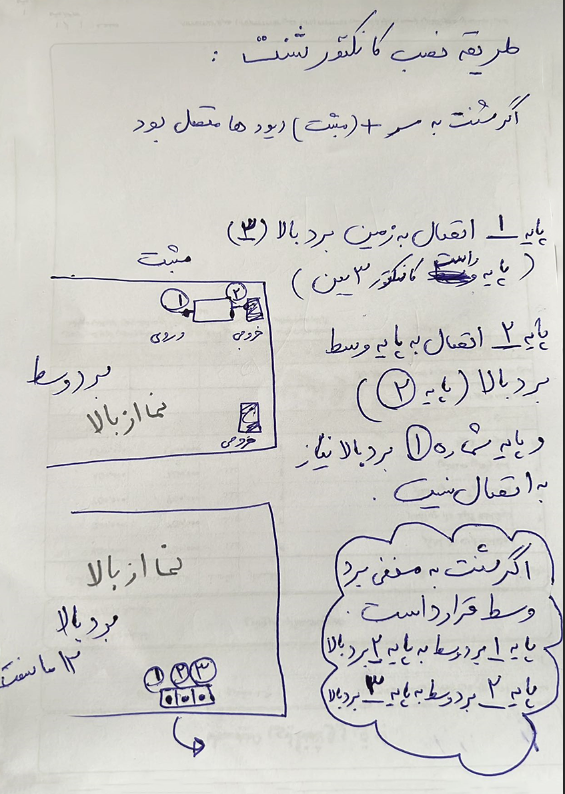 طریقه نصب کانکتور شنت :
اگر شنت به سر + (مثبت) دیود ها متصل بود
پایه 1 اتصال به زمین برد بالا (۳)
(پایه راست کانکتور ۳ پین)
پایه ۲ اتصال به پایه وسط
برد بالا (پایه ۲)
و پایه شماره ۱ برد بالا نیاز
به اتصال نیست .
مثبت
۱ ۲
ورودی خروجی
برد وسط
نما از بالا
خروجی
نما از بالا
برد بالا
۱ ۲ ۳
اگر شنت به منفی برد
وسط قرار داست .
پایه 1 برد وسط به پایه ۲ برد بالا
پایه ۲ برد وسط به پایه ۳ برد بالا